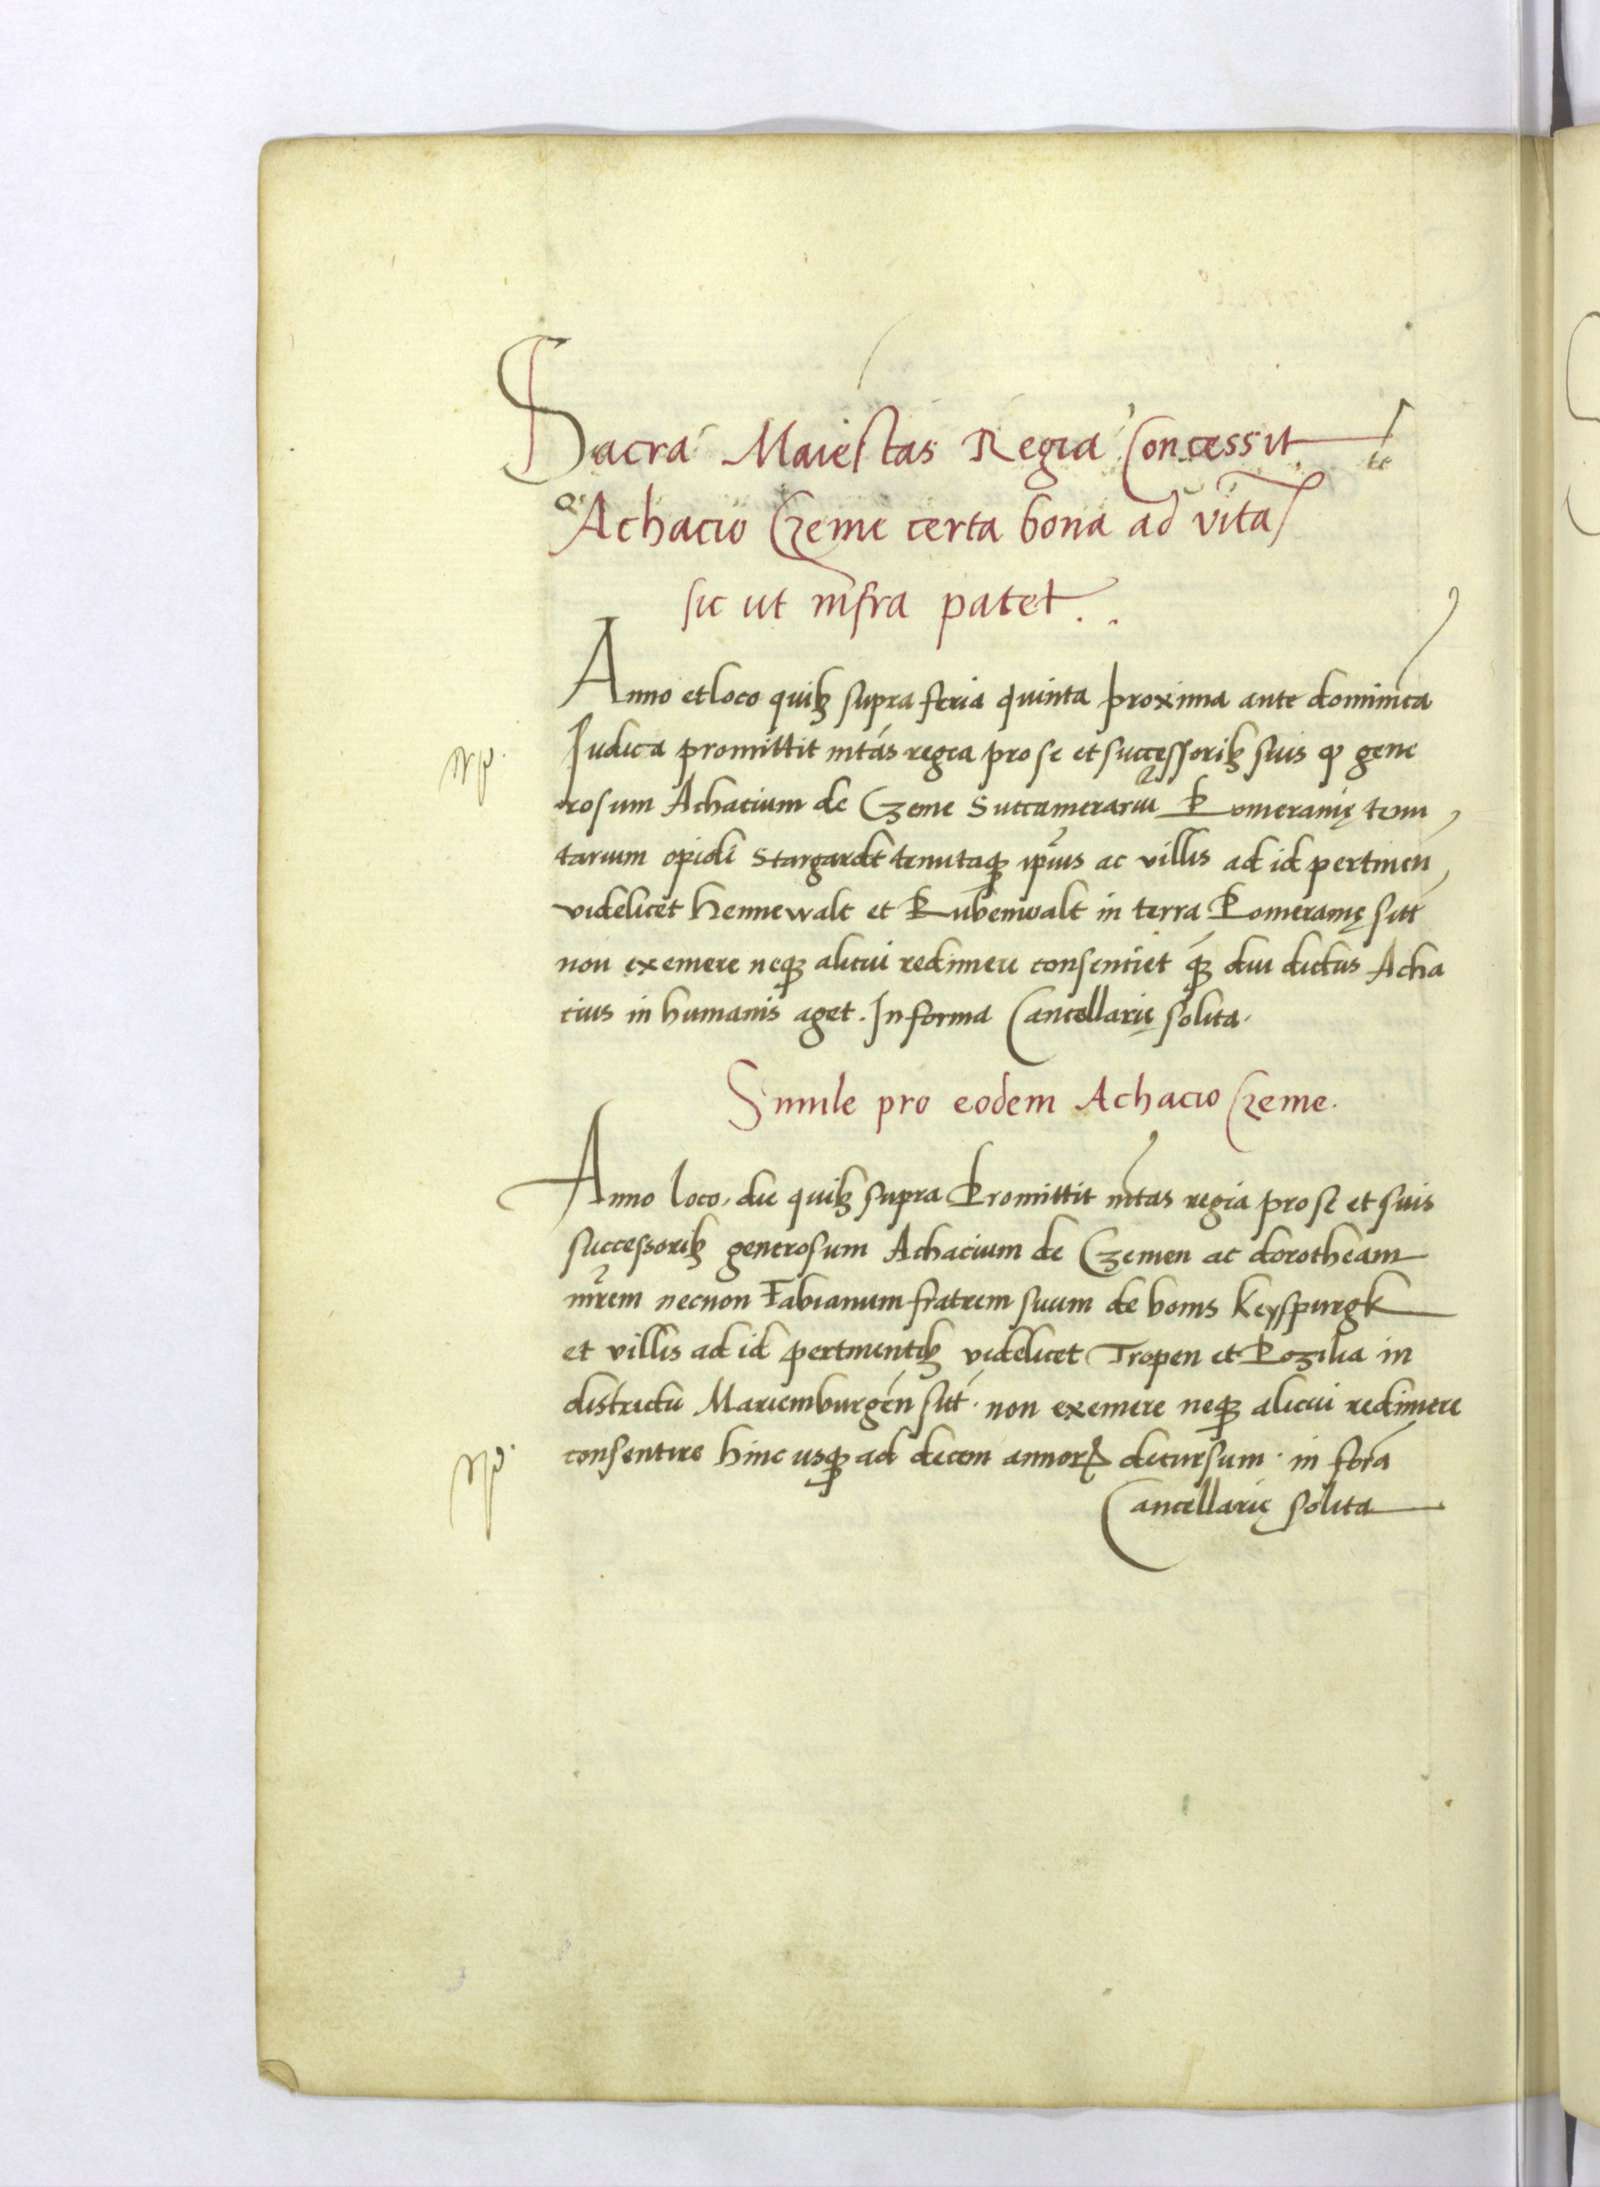 Sacra Maiestas Regia Concessit
Achacio Czeme certa bona ad vita
sic ut infra patet..
Anno et loco quibꝫ supra feria quinta proxima ante dominica
Judica promittit mtas regia pro se et successoribꝫ suis ꝙ gene
rosum Achacium de Czeme Succamerariu Pomeranię tenu
tarium opidi Stargardt tenutaqꝫ ipius ac villis ad id pertinen
videlicet Hennewalt et Rubenwalt in terra Pomeranię sitt
non exemere neqꝫ alicui redimere consentiet qꝫ diu dictus Acha
cius in humanis aget. In forma Cancellarię solita.
Simile pro eodem Achacio Czeme.
Anno loco, die quibꝫ supra Promittit mtas regia pro se et suis
successoribꝫ generosum Achacium de Czemen ac dorotheam
mrem necnon Fabianum fratrem suum de bonis Keyspurgk
et villis ad id pertinentibꝫ videlicet Tropen et Pozilia in
districtu Mariemburgen sitt. non exemere neqꝫ alicui redimere
consentire hinc usqꝫ ad decem annorꝝ decursum. in fora
Cancellarię solita